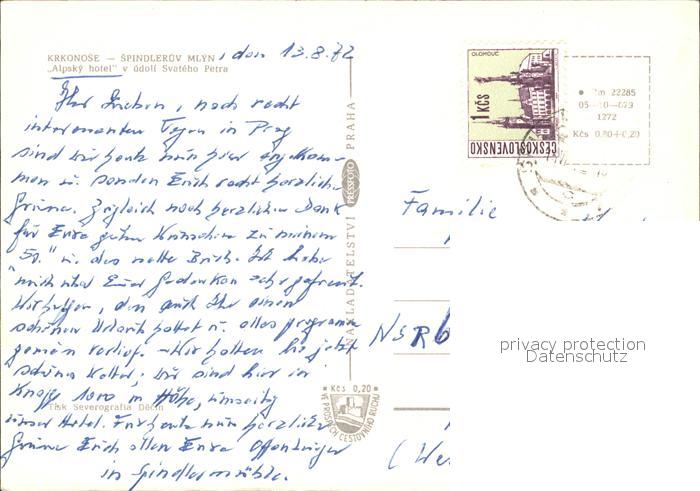 KRKONOŠE — ŠPINDLERŮV MLÝN, den 13.8.72
„Alpský hotel" v údolí Svatého Petra
Ihr Lieben, nach recht
interessanten Tagen in Prag
sind wir heute nun hier angekom-
men u. senden Euch recht herzliche
Grüsse. Zugleich noch herzlichen Dank
für Eure guten Wünsche zu meinem
"50." u. das nette Buch. Ich habe
mich über Euer Gedenken sehr gefreut.
Wir hoffen, das auch Ihr einen
schönen Urlaub hattet u. alles programm
gemäss verlief. Wir hatten bis jetzt
schönes Wetter, wir sind hier in
Knapp 1000 m Höhe, unser
Hotel. Für heute nun herzliche
Grüsse Euch allen Eure
in Spindlermühle.
Tisk Severografia Děčín
NAKLADATELSTVÍ PRESSFOTO PRAHA
Kčs 0,20
VE PROSPĚCH CESTOVNÍHO RUCHU
OLOMOUC
1 KČS
ČESKOSLOVENSKO
22285
05-10-029
1272
Kčs 0,80+0,20
Familie
NSRb
(We
privacy protection
Datenschutz